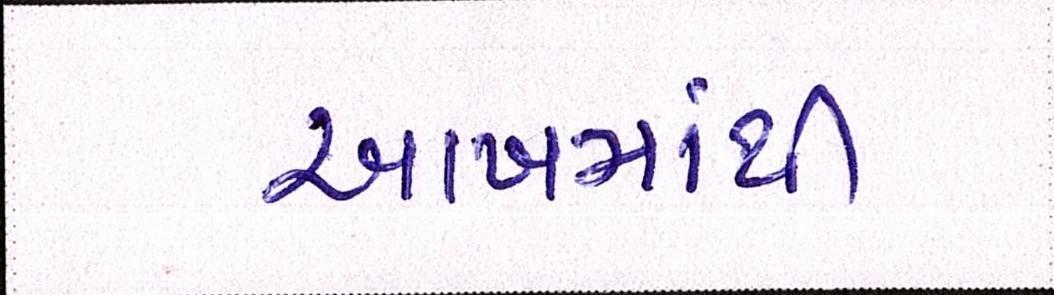 આખમાંથી